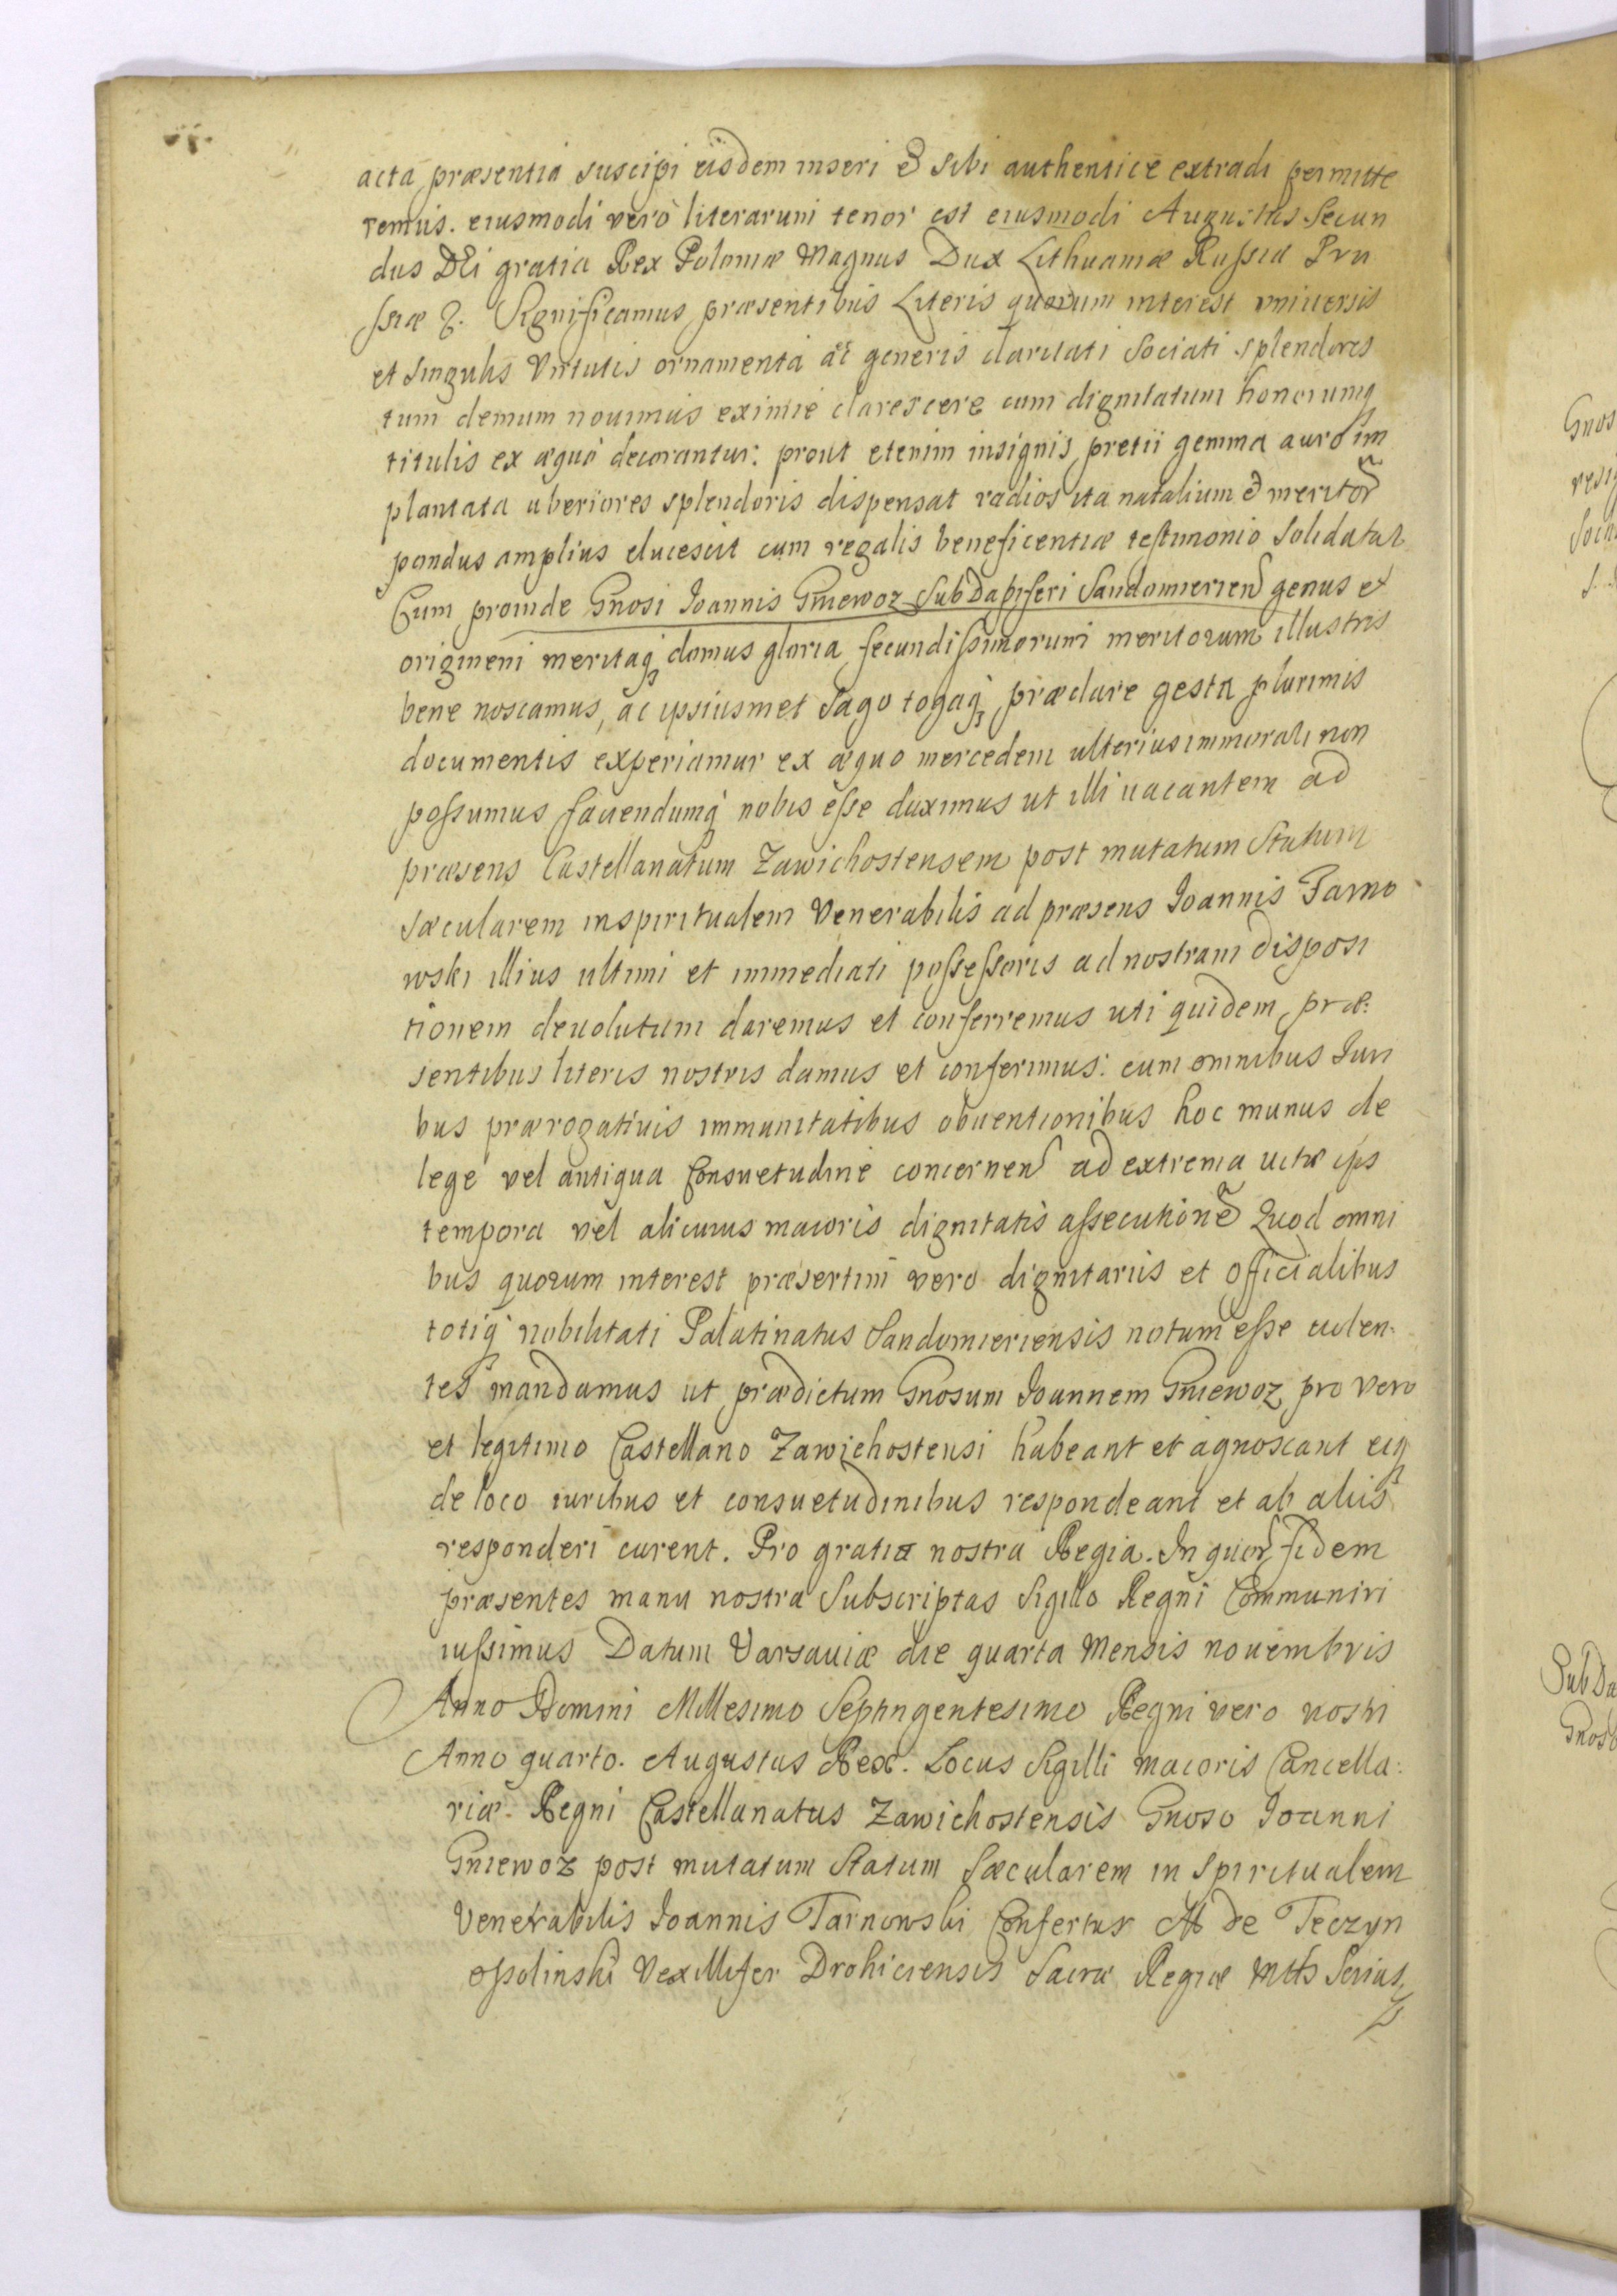 acta præsentia suscipi eisdem inseri & sibi authentice extradi permitte
remus. eiusmodi verò literarum tenor est eiusmodi Augustus Secun
dus DEi gratia Rex Poloniæ Magnus Dux Lithuaniæ Russiæ Pru
ssiæ &. Significamus præsentibus Literis quorum interest universis
et singulis Virtutis ornamenta ac generis claritati sociati splendores
tum demum novimus eximie clarescere cum dignitatum honorumq
titulis ex æquo decorantur: prout etenim insignis pretii gemma auro im
plantata uberiores splendoris dispensat radios ita natalium & meritor
pondus amplius elucescit cum regalis beneficentiæ testimonio solidatur
Cum proinde Gnosi Joannis Gniewoz SubDapiferi Sandomierien genus et
originem meritaq domus gloria fecundissimorum meritorum illustris
bene noscamus, ac ipsiusmet Sago togaq præclare gesta plurimis
documentis experiamur ex æquo mercedem ulterius immorari non
possumus favendumq nobis esse duximus ut illi vacantem ad
præsens Castellanatum Zawichostensem post mutatum Statum
sæcularem in spiritualem Venerabilis ad præsens Joannis Tarno
wski illius ultimi et immediati possessoris ad nostram disposi
tionem devolutum daremus et conferremus uti quidem præ:
sentibus literis nostris damus et conferimus: cum omnibus Juri
bus prærogativis immunitatibus obventionibus hoc munus de
lege vel antiqua Consuetudine concernen ad extrema vitæ ips
tempora vel alicuius maioris dignitatis assecutione Quod omni
bus quorum interest præsertim vero dignitariis et Officialibus
totiq nobilitati Palatinatus Sandomieriensis notum esse volen:
tes mandamus ut prædictum Gnosum Joannem Gniewoz pro vero
et legitimo Castellano Zawichostensi habeant et agnoscant eiq
de loco iuribus et consuetudinibus respondeant et ab aliis
responderi curent. Pro gratia nostra Regia. In quor fidem
præsentes manu nostra Subscriptas Sigillo Regni Communiri
iussimus Datum Varsaviæ die quarta Mensis novembris
Anno Domini Millesimo Septingentesimo Regni vero nostri
Anno quarto. Augustus Rex. Locus Sigilli maioris Cancella:
riæ Regni Castellanatus Zawichostensis Gnoso Joanni
Gniewoz post mutatum Statum sæcularem in spiritualem
Venerabilis Joannis Tarnowski Confertur M de Teczyn
ossolinski Vexillifer Drohiciensis Sacræ Regiæ Mttis